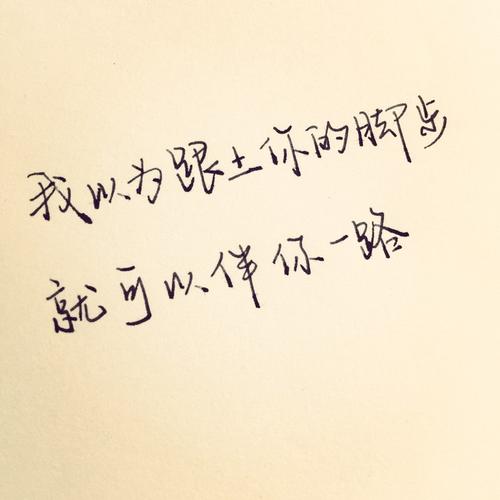 我以为跟上你的脚步
就可以伴你一路